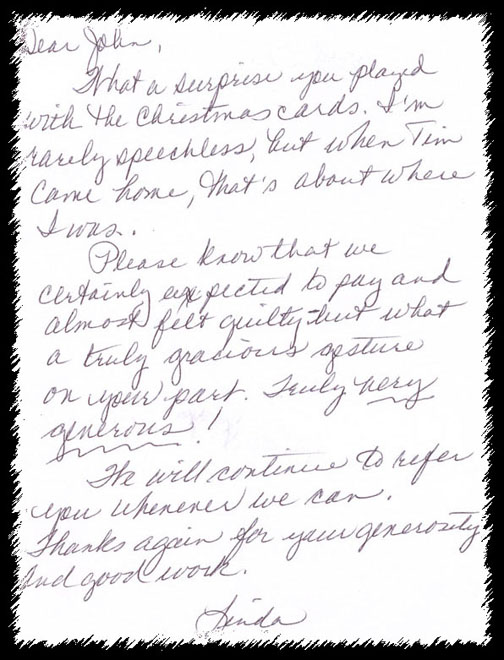 Dear John,
What a surprise you played
with the Christmas cards. I'm
rarely speechless, but when Tim
came home, that's about where
I was..
Please know that we
certainly expected to pay and
almost felt guilty-but what
a truly gracious gesture
on your part. Truly very
generous!
We will continue to refer
you whenever we can.
Thanks again for your generosity
and good work.
Linda